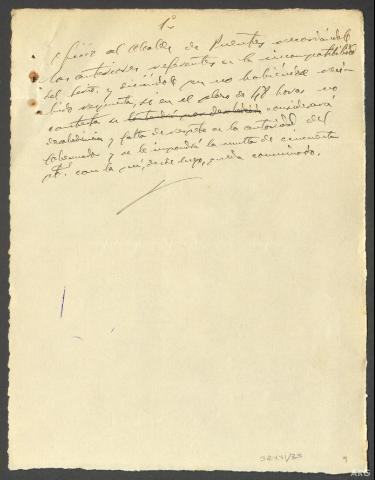 1º
Oficio al Alcalde de Puentes recordándole
los anteriores referentes a la incompatibilidad
del y diciéndole que no habiéndose reci-
bido respuesta, si en el plazo de 48 horas no
contesta se considerará
desobediencia y falta de respeto a la autoridad del
Gobernador y se le impondrá la multa de cincuenta
pts. con la que, desde luego, queda conminado.
32441/25
9